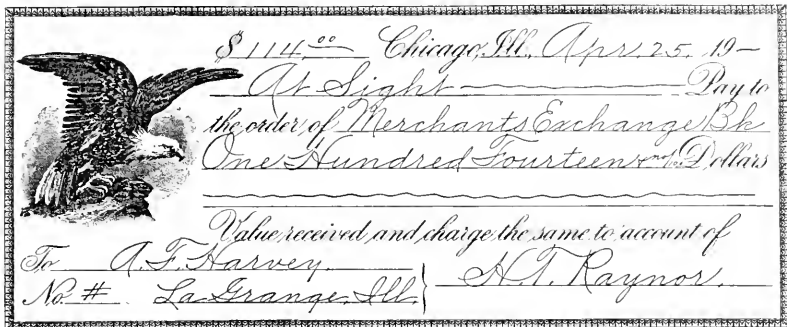 $ 114.00 Chicago, Ill. Apr. 25, 19–
At Sight Pay to
the order of Merchants Exchange Bk
One Hundred Fourteen Dollars
Value received and charge the same to account of
To A. F. Harvey H. T. Raynor
No. # La Grange, Ill.